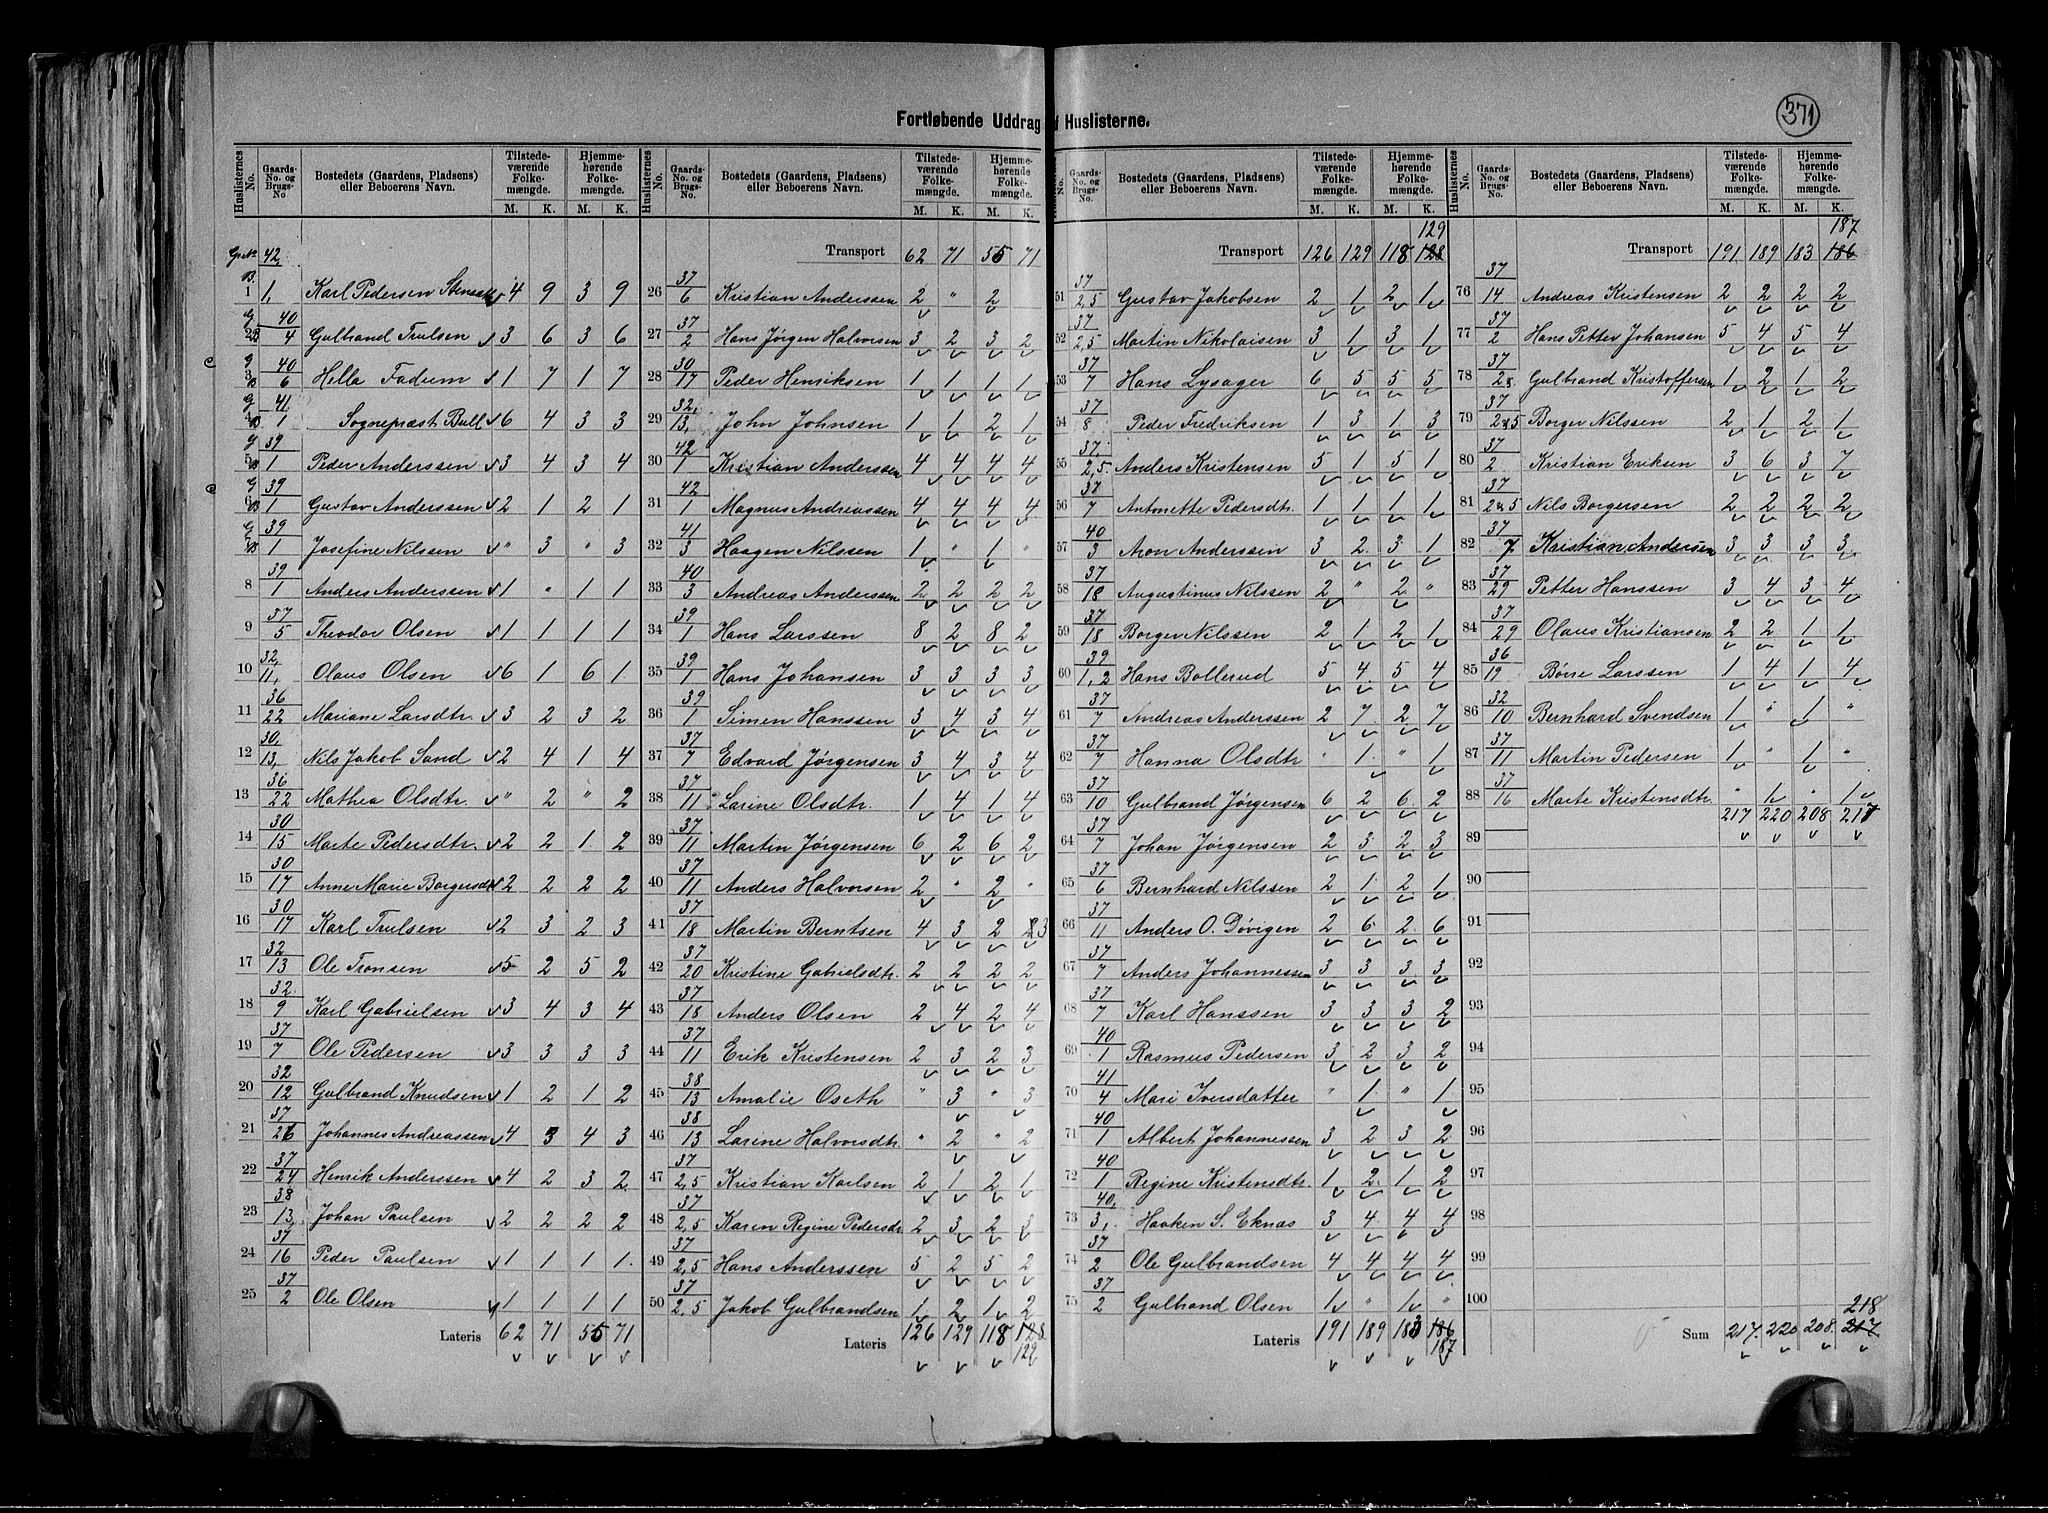 Fortløbende Uddrag af Huslisterne.
371
Huslisternes No. | Gaards-No. og Brugs-No | Bostedets (Gaardens, Pladsens) eller Beboerens Navn. | Tilstedeværende Folkemængde. M. K. | Hjemmehørende Folkemængde. M. K.
1 | 42/1, | Karl Pedersen | 4 | 9 | 3 | 9
2 | 40/4 | Gulbrand Trulsen | 3 | 6 | 3 | 6
3 | 40/6 | Hella Fadum | 1 | 7 | 1 | 7
4 | 41/1 | Sognepræst Bull | 6 | 4 | 3 | 3
5 | 39/1 | Peder Anderssen | 3 | 4 | 3 | 4
6 | 39/1 | Gustav Anderssen | 2 | 1 | 2 | 1
7 | 39/1 | Josefine Nilssen | " | 3 | " | 3
8 | 39/1 | Anders Anderssen | 1 | " | 1 | 1
9 | 37/5 | Theodor Olsen | 1 | 1 | 1 | 1
10 | 32/11, | Olaus Olsen | 6 | 1 | 6 | 1
11 | 36/22 | Mariane Larsdtr. | 3 | 2 | 3 | 2
12 | 30/13, | Nils Jakob Sand | 2 | 4 | 1 | 4
13 | 36/22 | Mathea Olsdtr. | " | 2 | " | 2
14 | 30/15 | Marte Pedersdtr. | 2 | 2 | 1 | 2
15 | 30/17 | Anne Marie Borgersdtr | 2 | 2 | 2 | 2
16 | 30/17 | Karl Trulsen | 2 | 3 | 2 | 3
17 | 32/13 | Ole Tronsen | 5 | 2 | 5 | 2
18 | 32/9 | Karl Gabrielsen | 3 | 4 | 3 | 4
19 | 37/7 | Ole Pedersen | 3 | 3 | 3 | 3
20 | 32/12 | Gulbrand Knudsen | 1 | 2 | 1 | 2
21 | 37/26 | Johannes Andreassen | 4 | 3 | 4 | 3
22 | 37/24 | Henrik Anderssen | 4 | 2 | 3 | 2
23 | 38/13, | Johan Paulsen | 2 | 2 | 2 | 2
24 | 37/16 | Peder Paulsen | 1 | 1 | 1 | 1.
25 | 37/2 | Ole Olsen | 1 | 1 | 1 | 1
Lateris | 62 | 71 | 55 | 71
Huslisternes No. | Gaards-No. og Brugs-No. | Bostedets (Gaardens, Pladsens) eller Beboerens Navn. | Tilstedeværende Folkemængde. M. K. | Hjemmehørende Folkemængde. M. K.
Transport | 62 | 71 | 55 | 71
26 | 37/6 | Kristian Anderssen | 2 | " | 2
27 | 37/2 | Hans Jørgen Halvorsen | 3 | 2 | 3 | 2
28 | 30/17 | Peder Henriksen | 1 | 1 | 1 | 1
29 | 32,/13, | John Johnsen | 1 | 1 | 2 | 1
30 | 42/1 | Kristian Anderssen | 4 | 4 | 4 | 4
31 | 42/1 | Magnus Andreassen | 4 | 4 | 4 | 4
32 | 41/3 | Haagen Nilssen | 1 | " | 1 | "
33 | 40/3 | Andreas Anderssen | 2 | 2 | 2 | 2
34 | 39/1 | Hans Larssen | 8 | 2 | 8 | 2
35 | 39/1 | Hans Johansen | 3 | 3 | 3 | 3
36 | 39/1 | Simen Hanssen | 3 | 4 | 3 | 4
37 | 37/7 | Edvard Jørgensen | 3 | 4 | 3 | 4
38 | 37/11 | Larine Olsdtr. | 1 | 4 | 1 | 4
39 | 37/11 | Martin Jørgensen | 6 | 2 | 6 | 2
40 | 37/11 | Anders Halvorsen | 2 | " | 2 | "
41 | 37/18 | Martin Berntsen | 4 | 3 | 2 | 3
42 | 37/20 | Kristine Gabrielsdtr. | 2 | 2 | 2 | 2
43 | 37/18 | Anders Olsen | 2 | 4 | 2 | 4
44 | 37/11 | Erik Kristensen | 2 | 3 | 2 | 3
45 | 38/13 | Amalie Oseth | " | 3 | " | 3
46 | 38/13 | Larine Halvorsdtr. | " | 2 | " | 2
47 | 37/2,5 | Kristian Karlsen | 2 | 1 | 2 | 1
48 | 37/2,5 | Karen Regine Pedersdtr | 2 | 3 | 2 | 3
49 | 37/2,5 | Hans Anderssen | 5 | 2 | 5 | 2
50 | 37/2,5 | Jakob Gulbrandsen | 1 | 2 | 1 | 2
Lateris | 126 | 129 | 118 | 128 129
Huslisternes No. | Gaards-No. og Brugs-No. | Bostedets (Gaardens, Pladsens) eller Beboerens Navn. | Tilstedeværende Folkemængde. M. K. | Hjemmehørende Folkemængde. M. K.
Transport | 126 | 129 | 118 | 129 128
51 | 37/2,5 | Gustav Jakobsen | 2 | 1 | 2 | 1
52 | 37/2,5 | Martin Nikolaisen | 3 | 1 | 3 | 1
53 | 37/7 | Hans Lysager | 6 | 5 | 5 | 5
54 | 37/8 | Peder Fredriksen | 1 | 3 | 1 | 3
55 | 37/2,5 | Anders Kristensen | 5 | 1 | 5 | 1
56 | 37/7 | Antonette Pedersdtr. | 1 | 1 | 1 | 1
57 | 40/3 | Aron Anderssen | 3 | 2 | 3 | 1
58 | 37/18 | Augustinus Nilssen | 2 | " | 2 | "
59 | 37/18 | Borger Nilssen | 2 | 1 | 2 | 1
60 | 39/1,2 | Hans Bollerud | 5 | 4 | 5 | 4
61 | 37/7 | Andreas Anderssen | 2 | 7 | 2 | 7
62 | 37/7 | Hanna Olsdtr | " | 1 | " | 1
63 | 37/10 | Gulbrand Jørgensen | 6 | 2 | 6 | 2
64 | 37/7 | Johan Jørgensen | 2 | 3 | 2 | 3
65 | 37/6 | Bernhard Nilssen | 2 | 1 | 2 | 1
66 | 37/11 | Anders O. Døvigen | 2 | 6 | 2 | 6
67 | 37/7 | Anders Johannessen | 3 | 3 | 3 | 3
68 | 37/7 | Karl Hanssen | 3 | 3 | 3 | 2
69 | 40/1 | Rasmus Pedersen | 3 | 2 | 3 | 2
70 | 41/4 | Mari Iversdatter | " | 1 | " | 1
71 | 40/1 | Albert Johannessen | 3 | 2 | 3 | 2
72 | 40/1 | Regine Kristensdtr. | 1 | 2 | 1 | 2
73 | 40,/3, | Haaken S. Eknæs | 3 | 4 | 4 | 4
74 | 37/2 | Ole Gulbrandsen | 4 | 4 | 4 | 4
75 | 37/2 | Gulbrand Olsen | 1 | " | 1 | "
Lateris | 191 | 189 | 183 | 186 187
Huslisternes No. | Gaards-No. og Brugs-No. | Bostedets (Gaardens, Pladsens) eller Beboerens Navn. | Tilstedeværende Folkemængde. M. K. | Hjemmehørende Folkemængde. M. K.
Transport | 191 | 189 | 183 | 187 186
76 | 37/14 | Andreas Kristensen | 2 | 2 | 2 | 2
77 | 37/2 | Hans Petter Johansen | 5 | 4 | 5 | 4
78 | 37/2 | Gulbrand Kristoffersen | 1 | 2 | 1 | 2
79 | 37/2&5 | Borger Nilssen | 2 | 1 | 2 | 1
80 | 37/2 | Kristian Eriksen | 3 | 6 | 3 | 7
81 | 37/2&5 | Nils Borgersen | 2 | 2 | 2 | 2
82 | 37/7 | Kristian Andersen | 3 | 3 | 3 | 3
83 | 37/29 | Petter Hanssen | 3 | 4 | 3 | 4
84 | 37/29 | Olaus Kristiansen | 2 | 2 | 1 | 1
85 | 36/19 | Børre Larssen | 1 | 4 | 1 | 4
86 | 32/10 | Bernhard Svendsen | 1 | " | 1 | "
87 | 37/11 | Martin Pedersen | 1 | " | 1 | "
88 | 37/16 | Marte Kristensdtr. | " | 1 | " | 1
89 | 217 | 220 | 208 | 217
90
91
92
93
94
95
96
97
98
99
100
Sum | 217. | 220 | 208. | 218 217